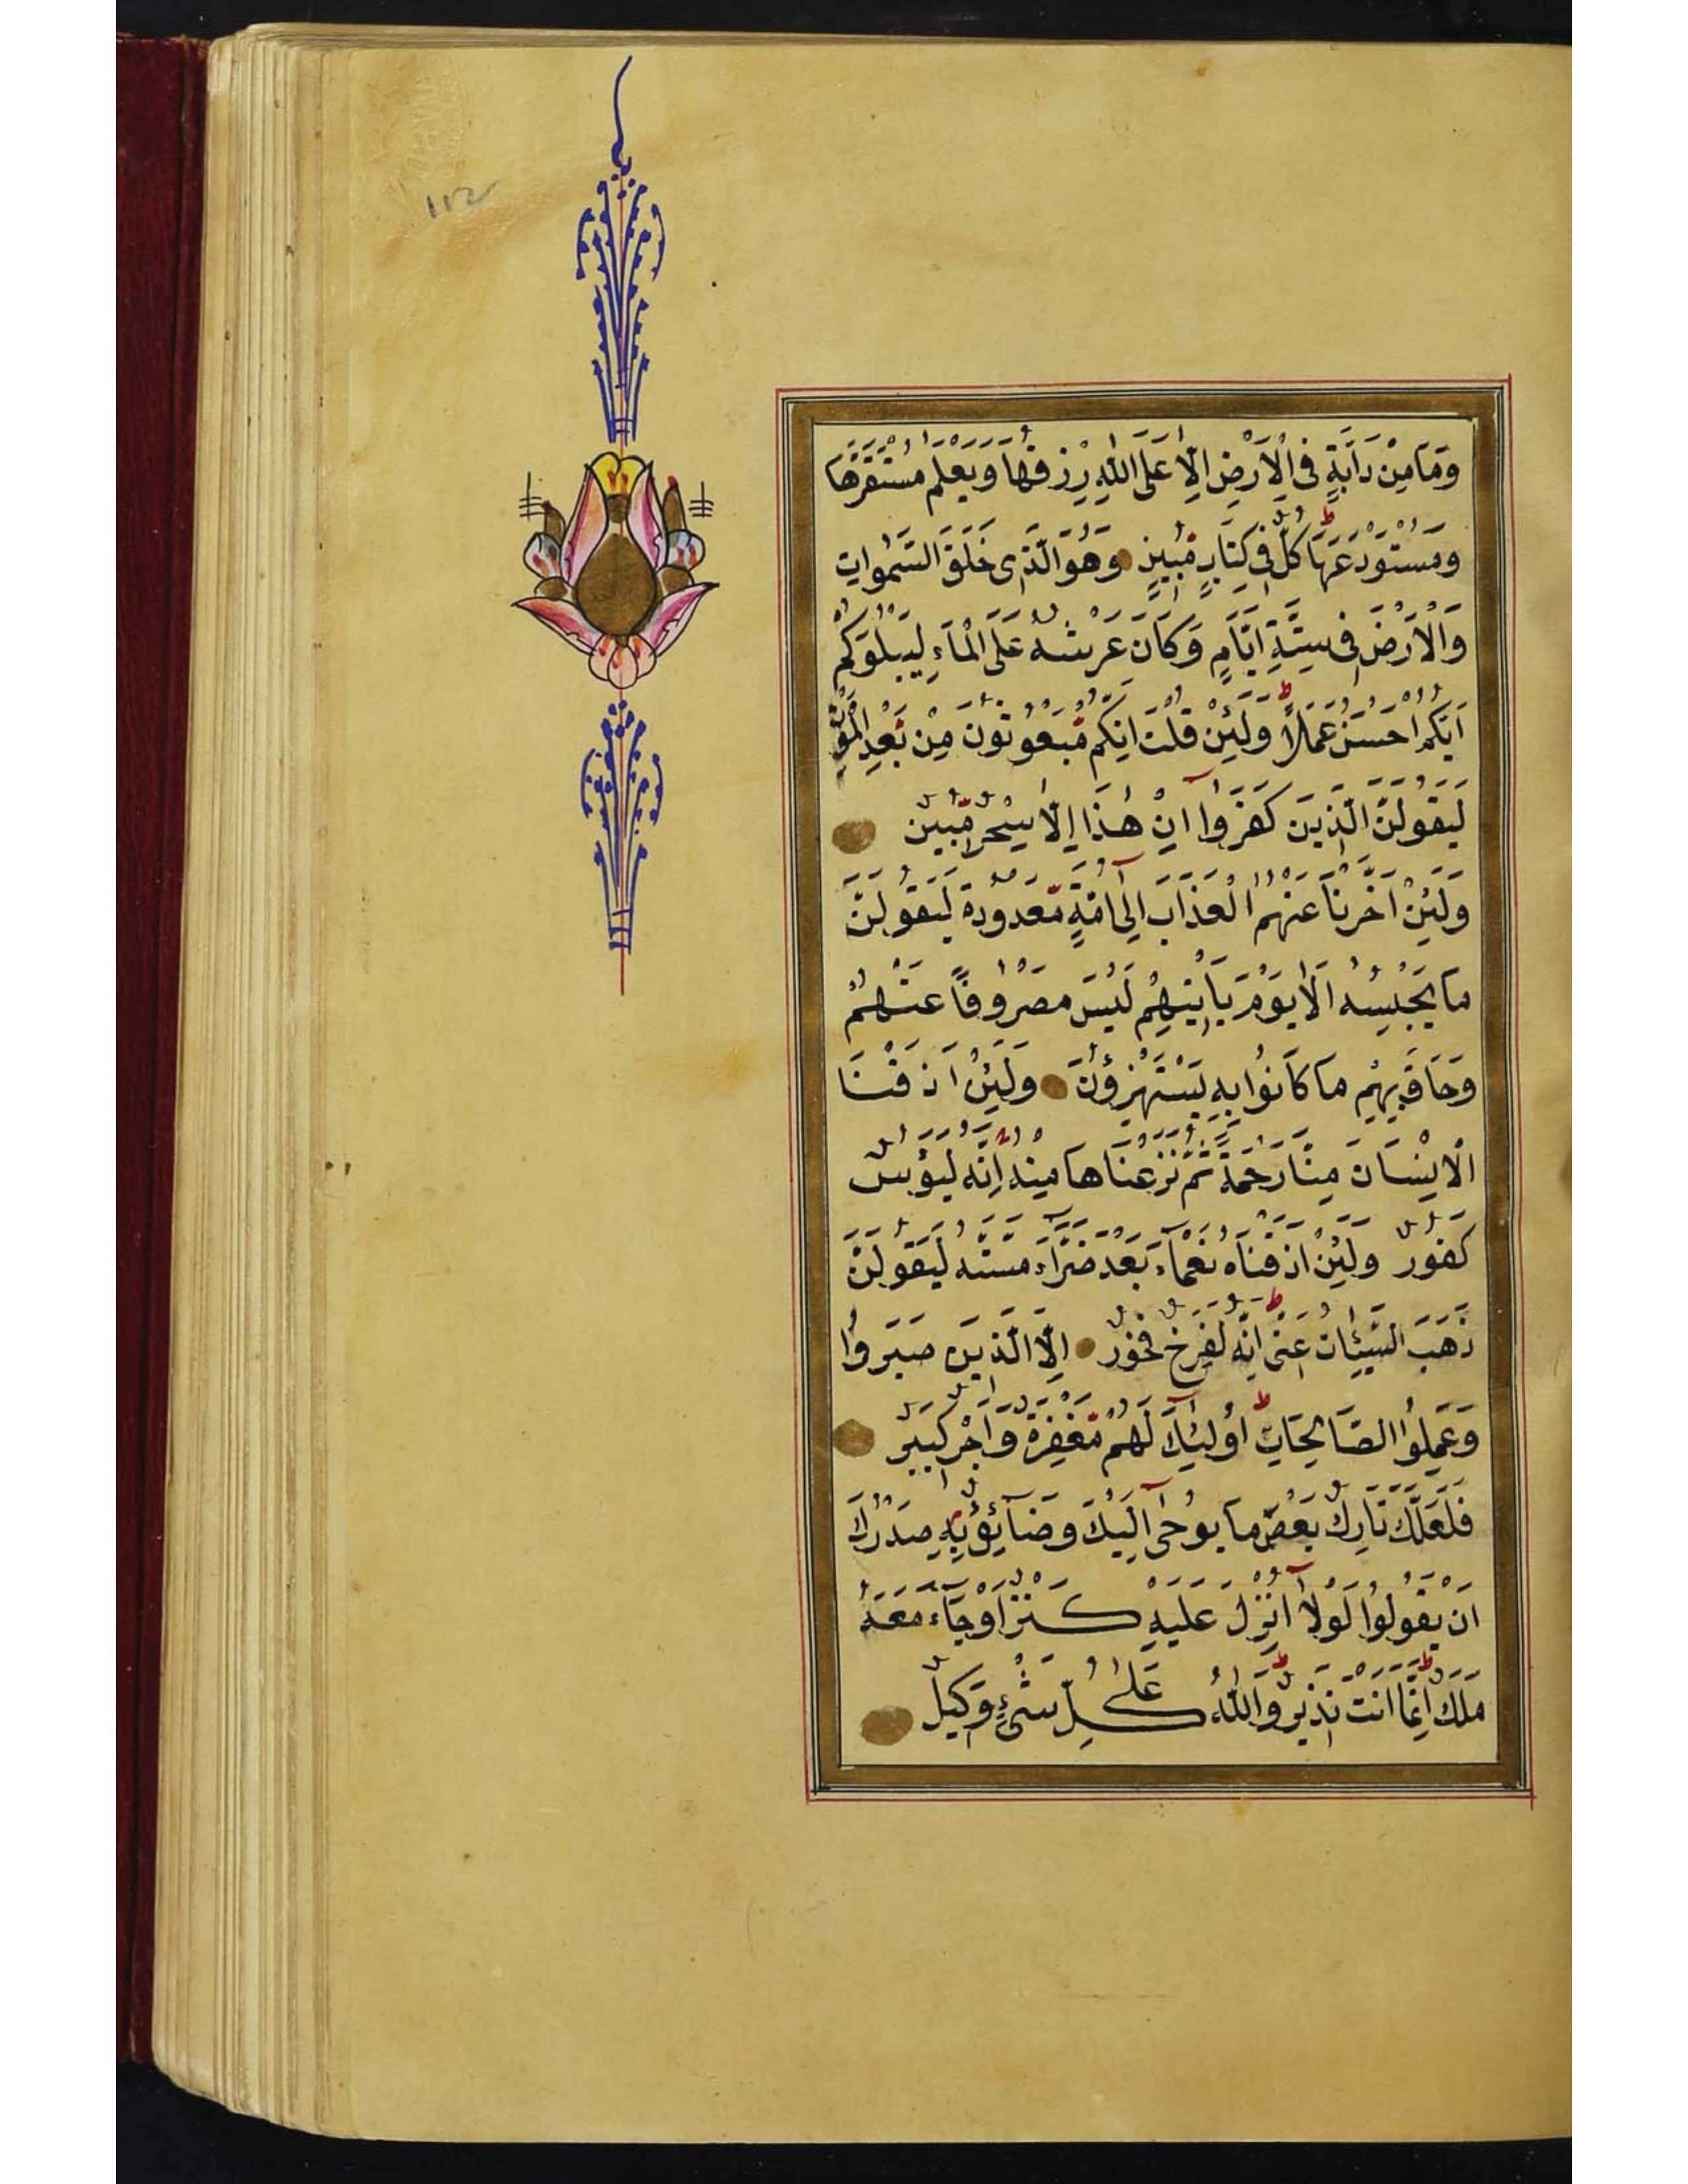 ١١٢
وَمَا مِنْ دَابَّةٍ فِى الْاَرْضِ اِلَّا عَلَى اللّٰهِ رِزْقُهَا وَيَعْلَمُ مُسْتَقَرَّهَا
وَمُسْتَوْدَعَهَا ط كُلٌّ فِى كِتَابٍ مُّبِينٍ وَهُوَ الَّذِى خَلَقَ السَّمٰوَاتِ
وَالْاَرْضَ فِى سِتَّةِ اَيَّامٍ وَكَانَ عَرْشُهُ عَلَى الْمَآءِ لِيَبْلُوَكُمْ
اَيُّكُمْ اَحْسَنُ عَمَلًا ط وَلَئِنْ قُلْتَ اِنَّكُمْ مَّبْعُوثُونَ مِنْ بَعْدِ الْمَوْتِ
لَيَقُولَنَّ الَّذِينَ كَفَرُوٓا اِنْ هٰذَا اِلَّا سِحْرٌ مُّبِينٌ
وَلَئِنْ اَخَّرْنَا عَنْهُمُ الْعَذَابَ اِلٰٓى اُمَّةٍ مَّعْدُودَةٍ لَيَقُولُنَّ
مَا يَحْبِسُهُ اَلَا يَوْمَ يَاْتِيهِمْ لَيْسَ مَصْرُوفًا عَنْهُمْ
وَحَاقَ بِهِمْ مَا كَانُوا بِهِ يَسْتَهْزِؤُنَ وَلَئِنْ اَذَقْنَا
الْاِنْسَانَ مِنَّا رَحْمَةً ثُمَّ نَزَعْنَاهَا مِنْهُ اِنَّهُ لَيَؤُسٌ
كَفُورٌ وَلَئِنْ اَذَقْنَاهُ نَعْمَآءَ بَعْدَ ضَرَّآءَ مَسَّتْهُ لَيَقُولَنَّ
ذَهَبَ السَّيِّئَاتُ عَنِّى ط اِنَّهُ لَفَرِحٌ فَخُورٌ اِلَّا الَّذِينَ صَبَرُوا
وَعَمِلُوا الصَّالِحَاتِ ط اُولٰٓئِكَ لَهُمْ مَّغْفِرَةٌ وَاَجْرٌ كَبِيرٌ
فَلَعَلَّكَ تَارِكٌ بَعْضَ مَا يُوحٰٓى اِلَيْكَ وَضَآئِقٌ بِهِ صَدْرُكَ
اَنْ يَقُولُوا لَوْلَآ اُنْزِلَ عَلَيْهِ كَنْزٌ اَوْ جَآءَ مَعَهُ
مَلَكٌ ط اِنَّمَا اَنْتَ نَذِيرٌ ط وَّاللّٰهُ عَلٰى كُلِّ شَىْءٍ وَكِيلٌ